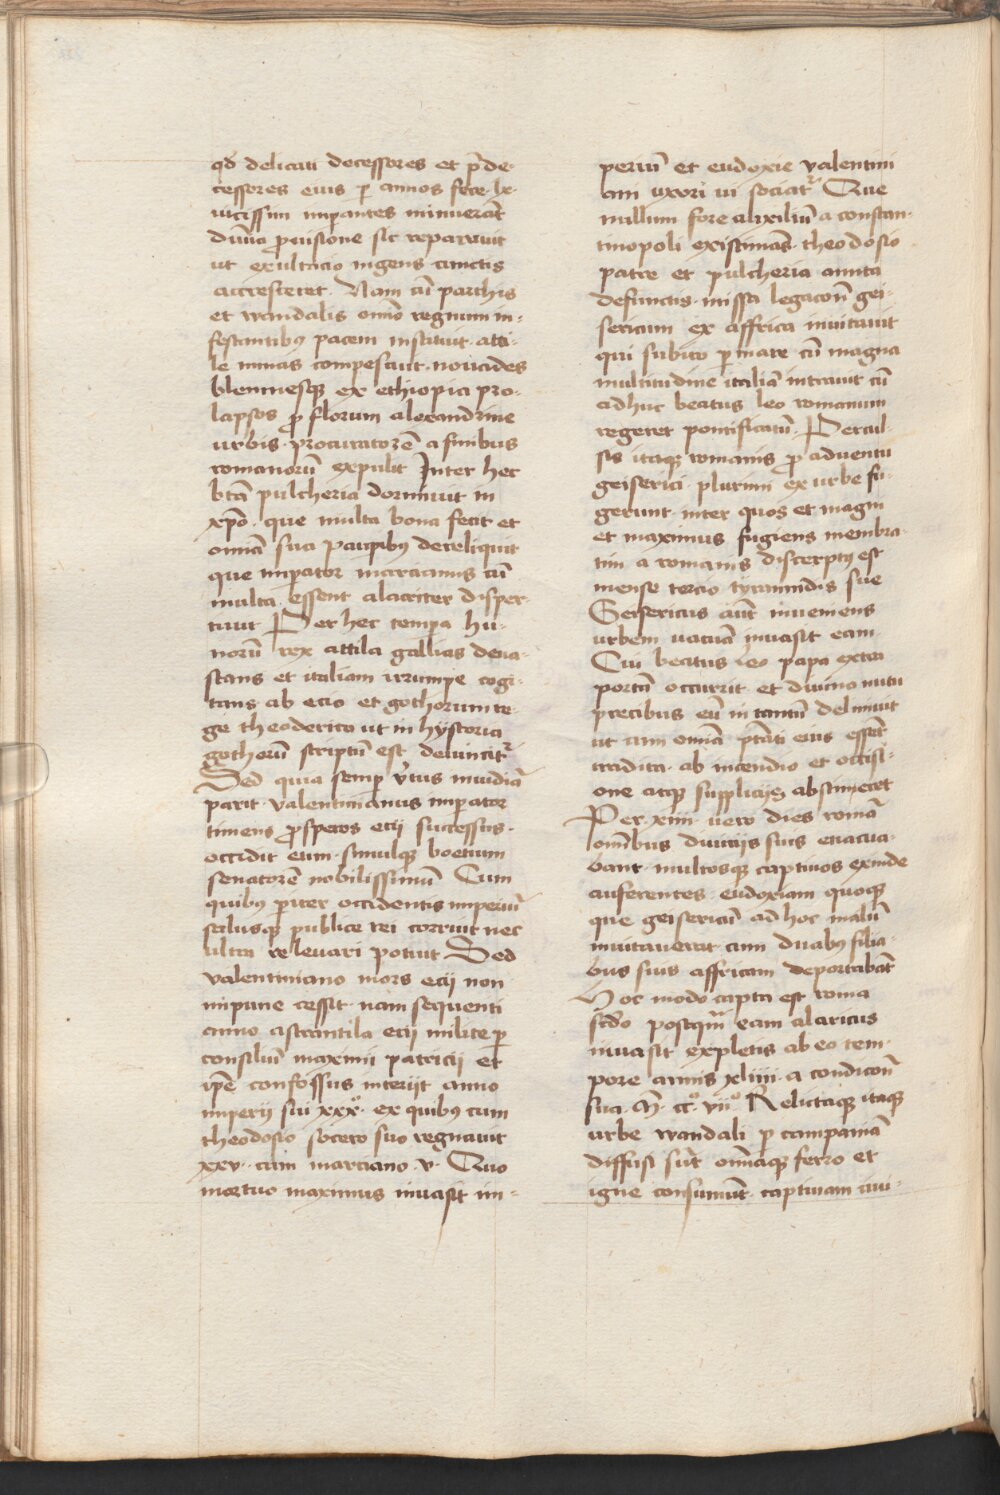 qd̄ delicati decessores et p̄de-
cessores eius p̄ annos fere lx
vicissim imp̄antes minuerāt
diuīa ꝓuisione sic reparauit
ut exultacio ingens cunctis
accresceret. Nam cū parthis
et wandalis om̄o regnum in-
festantibꝰ pacem instituit atti-
le minas compescuit nouades
blemmesqꝫ ex ethiopia pro-
lapsos ꝑ florum alexandrine
urbis procuratorē a finibus
romanorū expulit Inter hec
bt̄a pulcheria dormiuit in
xp̄o. que multa bona fecit et
omīa sua paupibꝰ dereliquit
que imp̄ator marcianus cū
multa essent alacriter disper-
tiuit Per hec temp̄a hu-
norū rex attila gallias deua-
stans et italiam irrumpe cogi-
tans ab ecio et gothorum re-
ge theoderico ut in hystoria
gothorū scriptū est deuincitᷣ
Sed quia semp̄ v̄tus inuidiā
parit. valentinianus imp̄ator
timens ꝓsperos ecij successus.
occidit eum. simulqꝫ boetium
senatorē nobilissimū Cum
quibꝰ p̄iter occidentis imperiū
salusqꝫ publice rei corruit nec
ultra releuari potuit Sed
valentiniano mors ecij non
impune cessit. nam sequenti
anno a strantila ecij milite p̄
consiliū maximi patricij et
ip̄e confossus interijt anno
imperij sui xxxº. ex quibꝰ cum
theodosio socero suo regnauit
xxv. cum marciano .v. Quo
mortuo maximus inuasit im-
periū et eudoxie valentini
ani uxori ui sociatᷣ Que
nullum fore auxiliū a constan-
tinopoli existimās. theodosio
patre et pulcheria amita
defunctis. missa legacōn̄ gei-
sericum ex affrica inuitauit
qui subito p̄ mare cū magna
multitudine italiā intrauit cū
adhuc beatus leo romanum
regeret pontificatū. Percul-
sis itaqꝫ romanis ꝓ aduentu
geiserici. plurimi ex urbe fu-
gerunt. inter quos et magni
et maximus fugiens membra-
tim a romanis discerptꝰ est
mense tercio tyrannidis sue
Geisericus aūt inueniens
urbem uacuā inuasit eam.
Cui beatus leo papa extra
portā occurrit et diuino nutu
precibus eū in tantū deliniuit
ut cum omīa p̄tati eius essēt
tradita. ab incendio et occisi-
one atqꝫ supplicijs abstineret
Per xiiii. uero dies romā
om̄ibus diuicijs suis euacua-
bant multosqꝫ captiuos exinde
auferentes. eudoxiam quoqꝫ
que geisericū ad hoc malū
inuitauerat cum duabꝰ filia-
bus suis affricam deportabāt
Hoc modo capta est roma
sc̄do postqm̄ eam alaricus
inuasit expletis ab eo tem-
pore annis xliiii. a condicōn̄
sua. M. ccº. viiº. Relictaqꝫ itaqꝫ
urbe wandali p̄ campaniā
diffusi sūt om̄iaqꝫ ferro et
igne consumūt captiuam ciui-